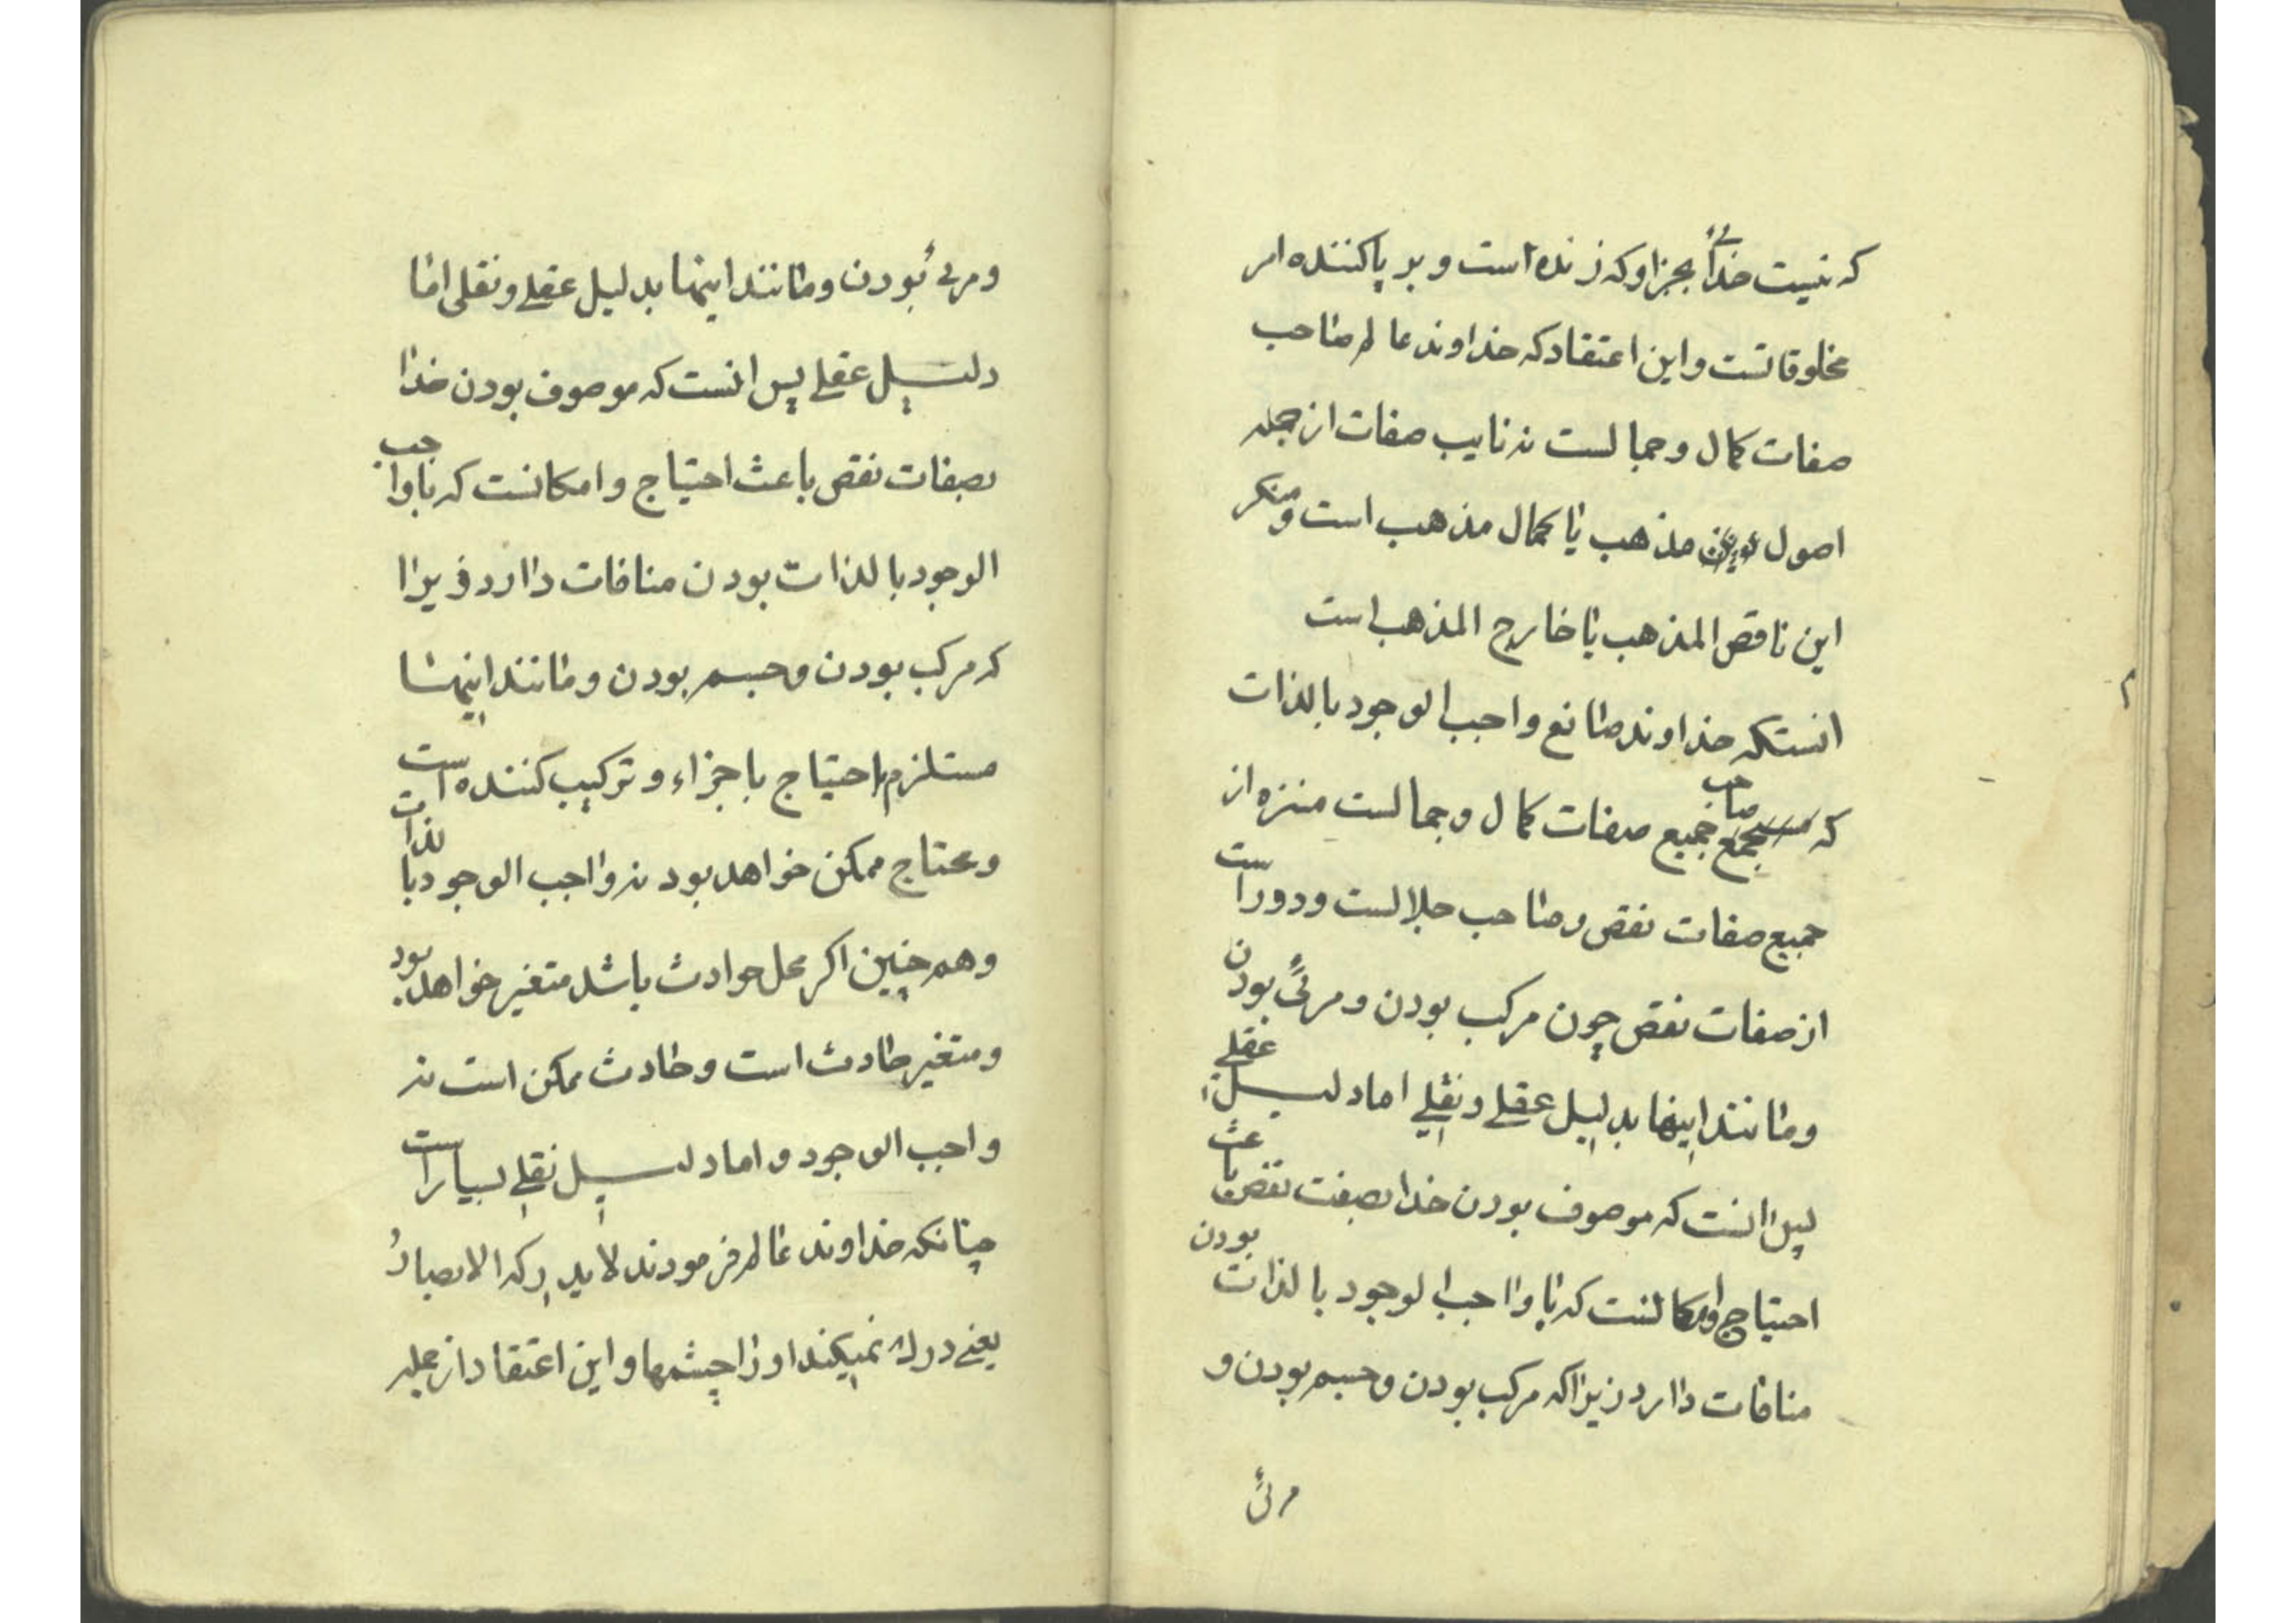 که نیست خدائی بجز او که زنده است و بر پا کننده امر
مخلوقاتست و این اعتقاد که خداوند عالم صاحب
صفات کمال و جمالست نه نایب صفات از جمله
اصول مذهب یا کمال مذهب است و منکر
این ناقص المذهب یا خارج المذهب است
انستکه خداوند صانع واجب الوجود بالذات
که صاحب جمیع صفات کمال و جمالست منزه از
جمیع صفات نقص و صاحب جلالست و دور است
از صفات نقص چون مرکب بودن و مرئی بودن
و مانند اینها بدلیل عقلی و نقلی اما دلیل عقلی
پس انست که موصوف بودن خدا بصفت نقص باعث
احتیاج و امکانست که با واجب الوجود بالذات بودن
منافات دارد زیرا که مرکب بودن و جسم بودن و
مرئی
و مرئی بودن و مانند اینها بدلیل عقلی و نقلی اما
دلیل عقلی پس انست که موصوف بودن خدا
بصفات نقص باعث احتیاج و امکانست که با واجب
الوجود بالذات بودن منافات دارد زیرا
که مرکب بودن و جسم بودن و مانند اینها
مستلزم احتیاج باجزاء و ترکیب کننده است
و محتاج ممکن خواهد بود نه واجب الوجود بالذات
و همچنین اکر محل حوادث باشد متغیر خواهد بود
و متغیر حادث است و حادث ممکن است نه
واجب الوجود و اما دلیل نقلی بسیار است
چنانکه خداوند عالم فرمودند لا یدرکه الابصارُ
یعنی درک نمیکند او را چشمها و این اعتقاد از جمله